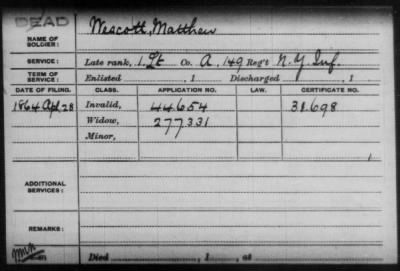 DEAD
NAME OF SOLDIER: Wescott, Matthew
SERVICE: Late rank, 1. Lt Co. A, 149 Reg't N.Y. Inf.
TERM OF SERVICE: Enlisted , 1 Discharged , 1
DATE OF FILING. CLASS. APPLICATION NO. LAW. CERTIFICATE NO.
1864 Apl. 28 Invalid, 44654 31.698
Widow, 277.331
Minor,
1
ADDITIONAL SERVICES:
REMARKS:
Died , 1 , at